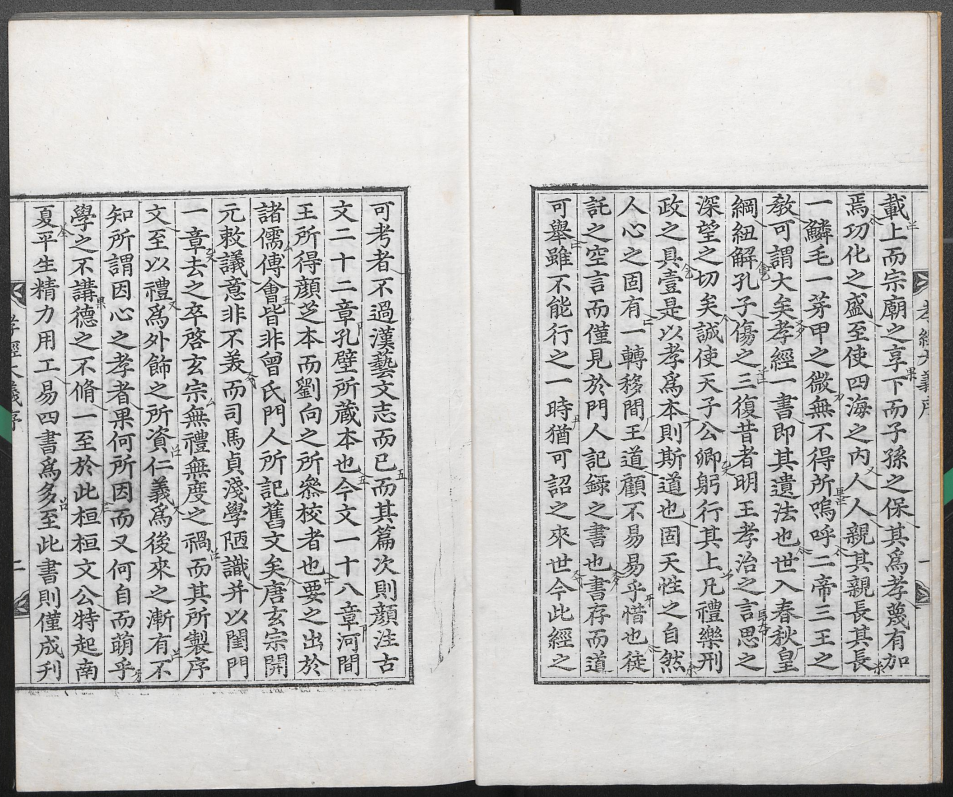 載上而宗廟之享下而子孫之保其爲孝蔑有加
焉功化之盛至使四海之內人人親其親長其長
一鱗毛一芽甲之微無不得所嗚呼二帝三王之
敎可謂大矣孝經一書即其遺法也世入春秋皇
綱紐解孔子傷之三復昔者明王孝治之言思之
深望之切矣誠使天子公卿躬行其上凡禮樂刑
政之具壹是以孝爲本則斯道也固天性之自然
人心之固有一轉移間王道顧不易易乎惜也徒
託之空言而僅見於門人記錄之書也書存而道
可擧雖不能行之一時猶可詔之來世今此經之
可考者不過漢藝文志而已而其篇次則顔注古
文二十二章孔壁所蔵本也今文一十八章河間
王所得顔芝本而劉向之所叅校者也要之出於
諸儒傳會皆非曾氏門人所記舊文矣唐玄宗開
元敕議意非不美而司馬貞淺學陋識并以閨門
一章去之卒啓玄宗無禮無度之禍而其所製序
文至以禮爲外飾之所資仁義爲後來之漸有不
知所謂因心之孝者果何所因而又何自而萌乎
學之不講德之不脩一至於此桓桓文公特起南
夏平生精力用工易四書爲多至此書則僅成刋
孝經大義序